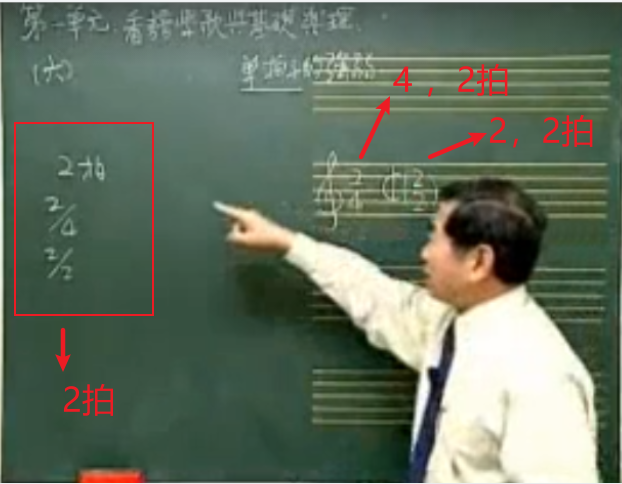 第一單元. 看譜學歌與基礎樂理.
(六) 單拍子的強弱.
4 , 2拍
2, 2拍
2拍
2/4
2/2
2 4 ( 2 2 )
2拍